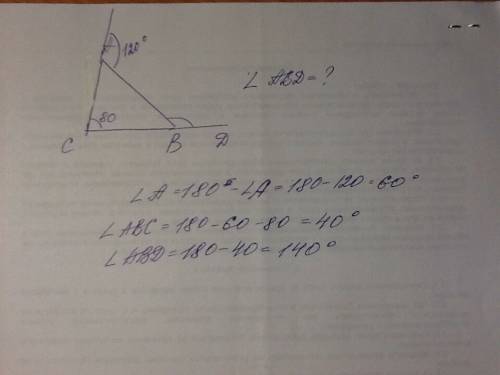 120°
∠ ABD = ?
80
C B D
∠A = 180° - ∠A = 180 - 120 = 60°
∠ABC = 180 - 60 - 80 = 40°
∠ABD = 180 - 40 = 140°